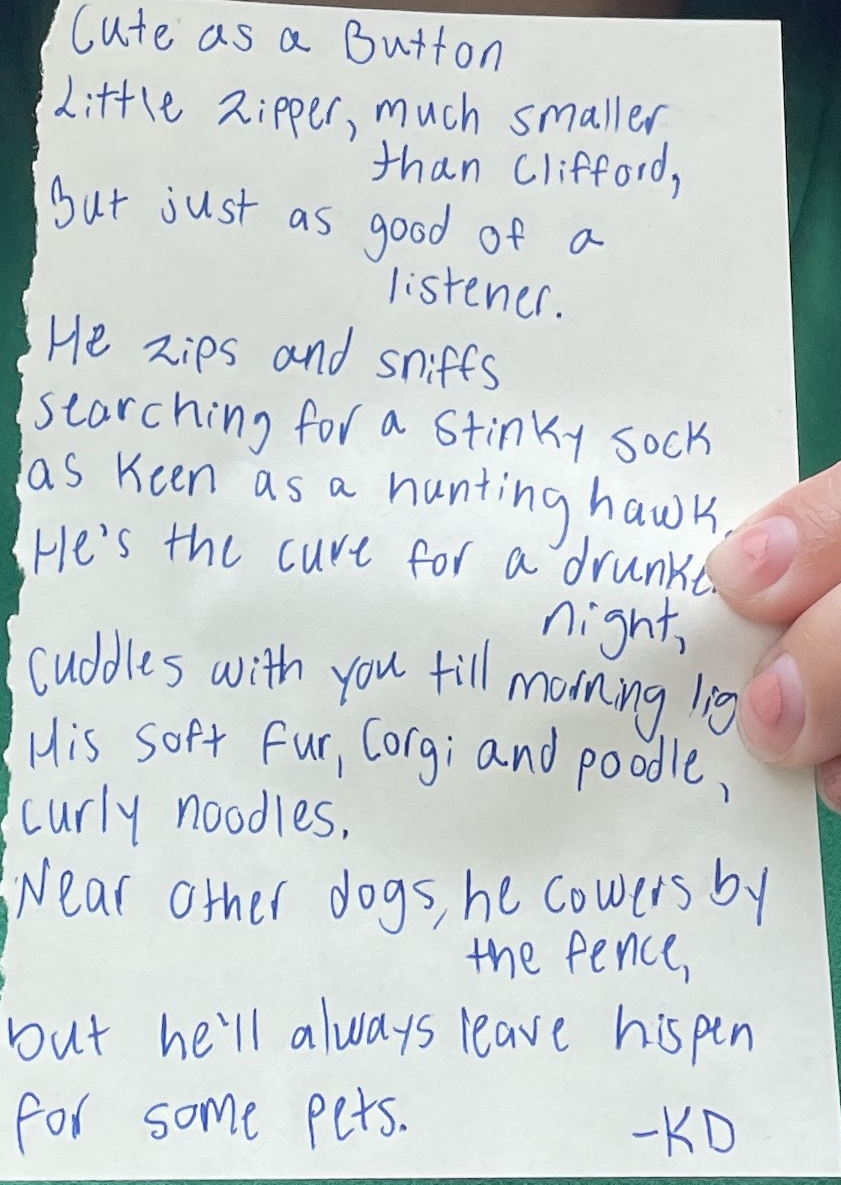 Cute as a Button
Little Zipper, much smaller
than Clifford,
But just as good of a
listener.
He zips and sniffs
searching for a stinky sock
as keen as a hunting hawk.
He's the cure for a
night,
cuddles with you till morning
His soft fur, Corgi and poodle,
curly noodles.
Near other dogs, he cowers by
the fence,
but he'll always leave his pen
for some pets.
-KD